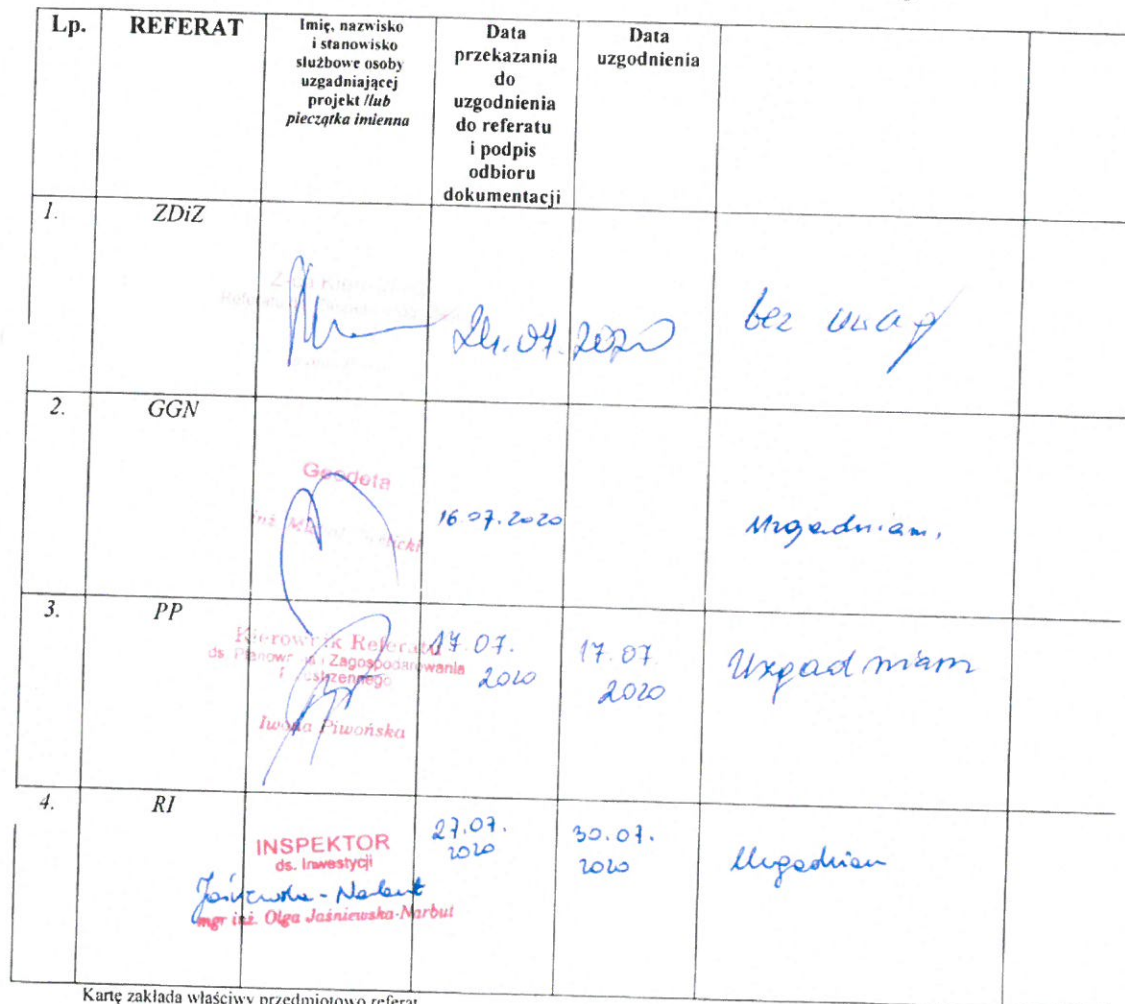 Lp.
REFERAT
Imię, nazwisko
i stanowisko
służbowe osoby
uzgadniającej
projekt /lub
pieczątka imienna
Data
przekazania
do
uzgodnienia
do referatu
i podpis
odbioru
dokumentacji
Data
uzgodnienia
1.
ZDiZ
07.2020
bez uwag
2.
GGN
Geodeta
inż.
16.07.2020
Uzgadniam.
3.
PP
Kierownik Referatu
ds. Planowania i Zagospodarowania
Przestrzennego
Iwona Piwońska
17.07.
2020
17.07
2020
Uzgadniam
4.
RI
INSPEKTOR
ds. Inwestycji
Jaśniewska-Narbut
mgr inż. Olga Jaśniewska-Narbut
27.07.
2020
30.07.
2020
Uzgadniam
Kartę zakłada właściwy przedmiotowo referat